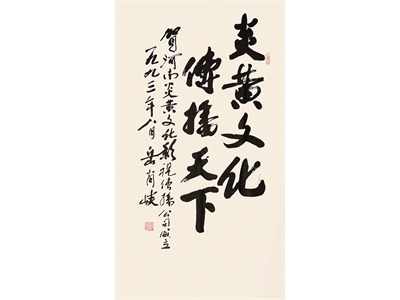 炎黄文化
傳播天下
贺河南炎黄文化影视传播公司成立
一九九三年八月 岳肖峡